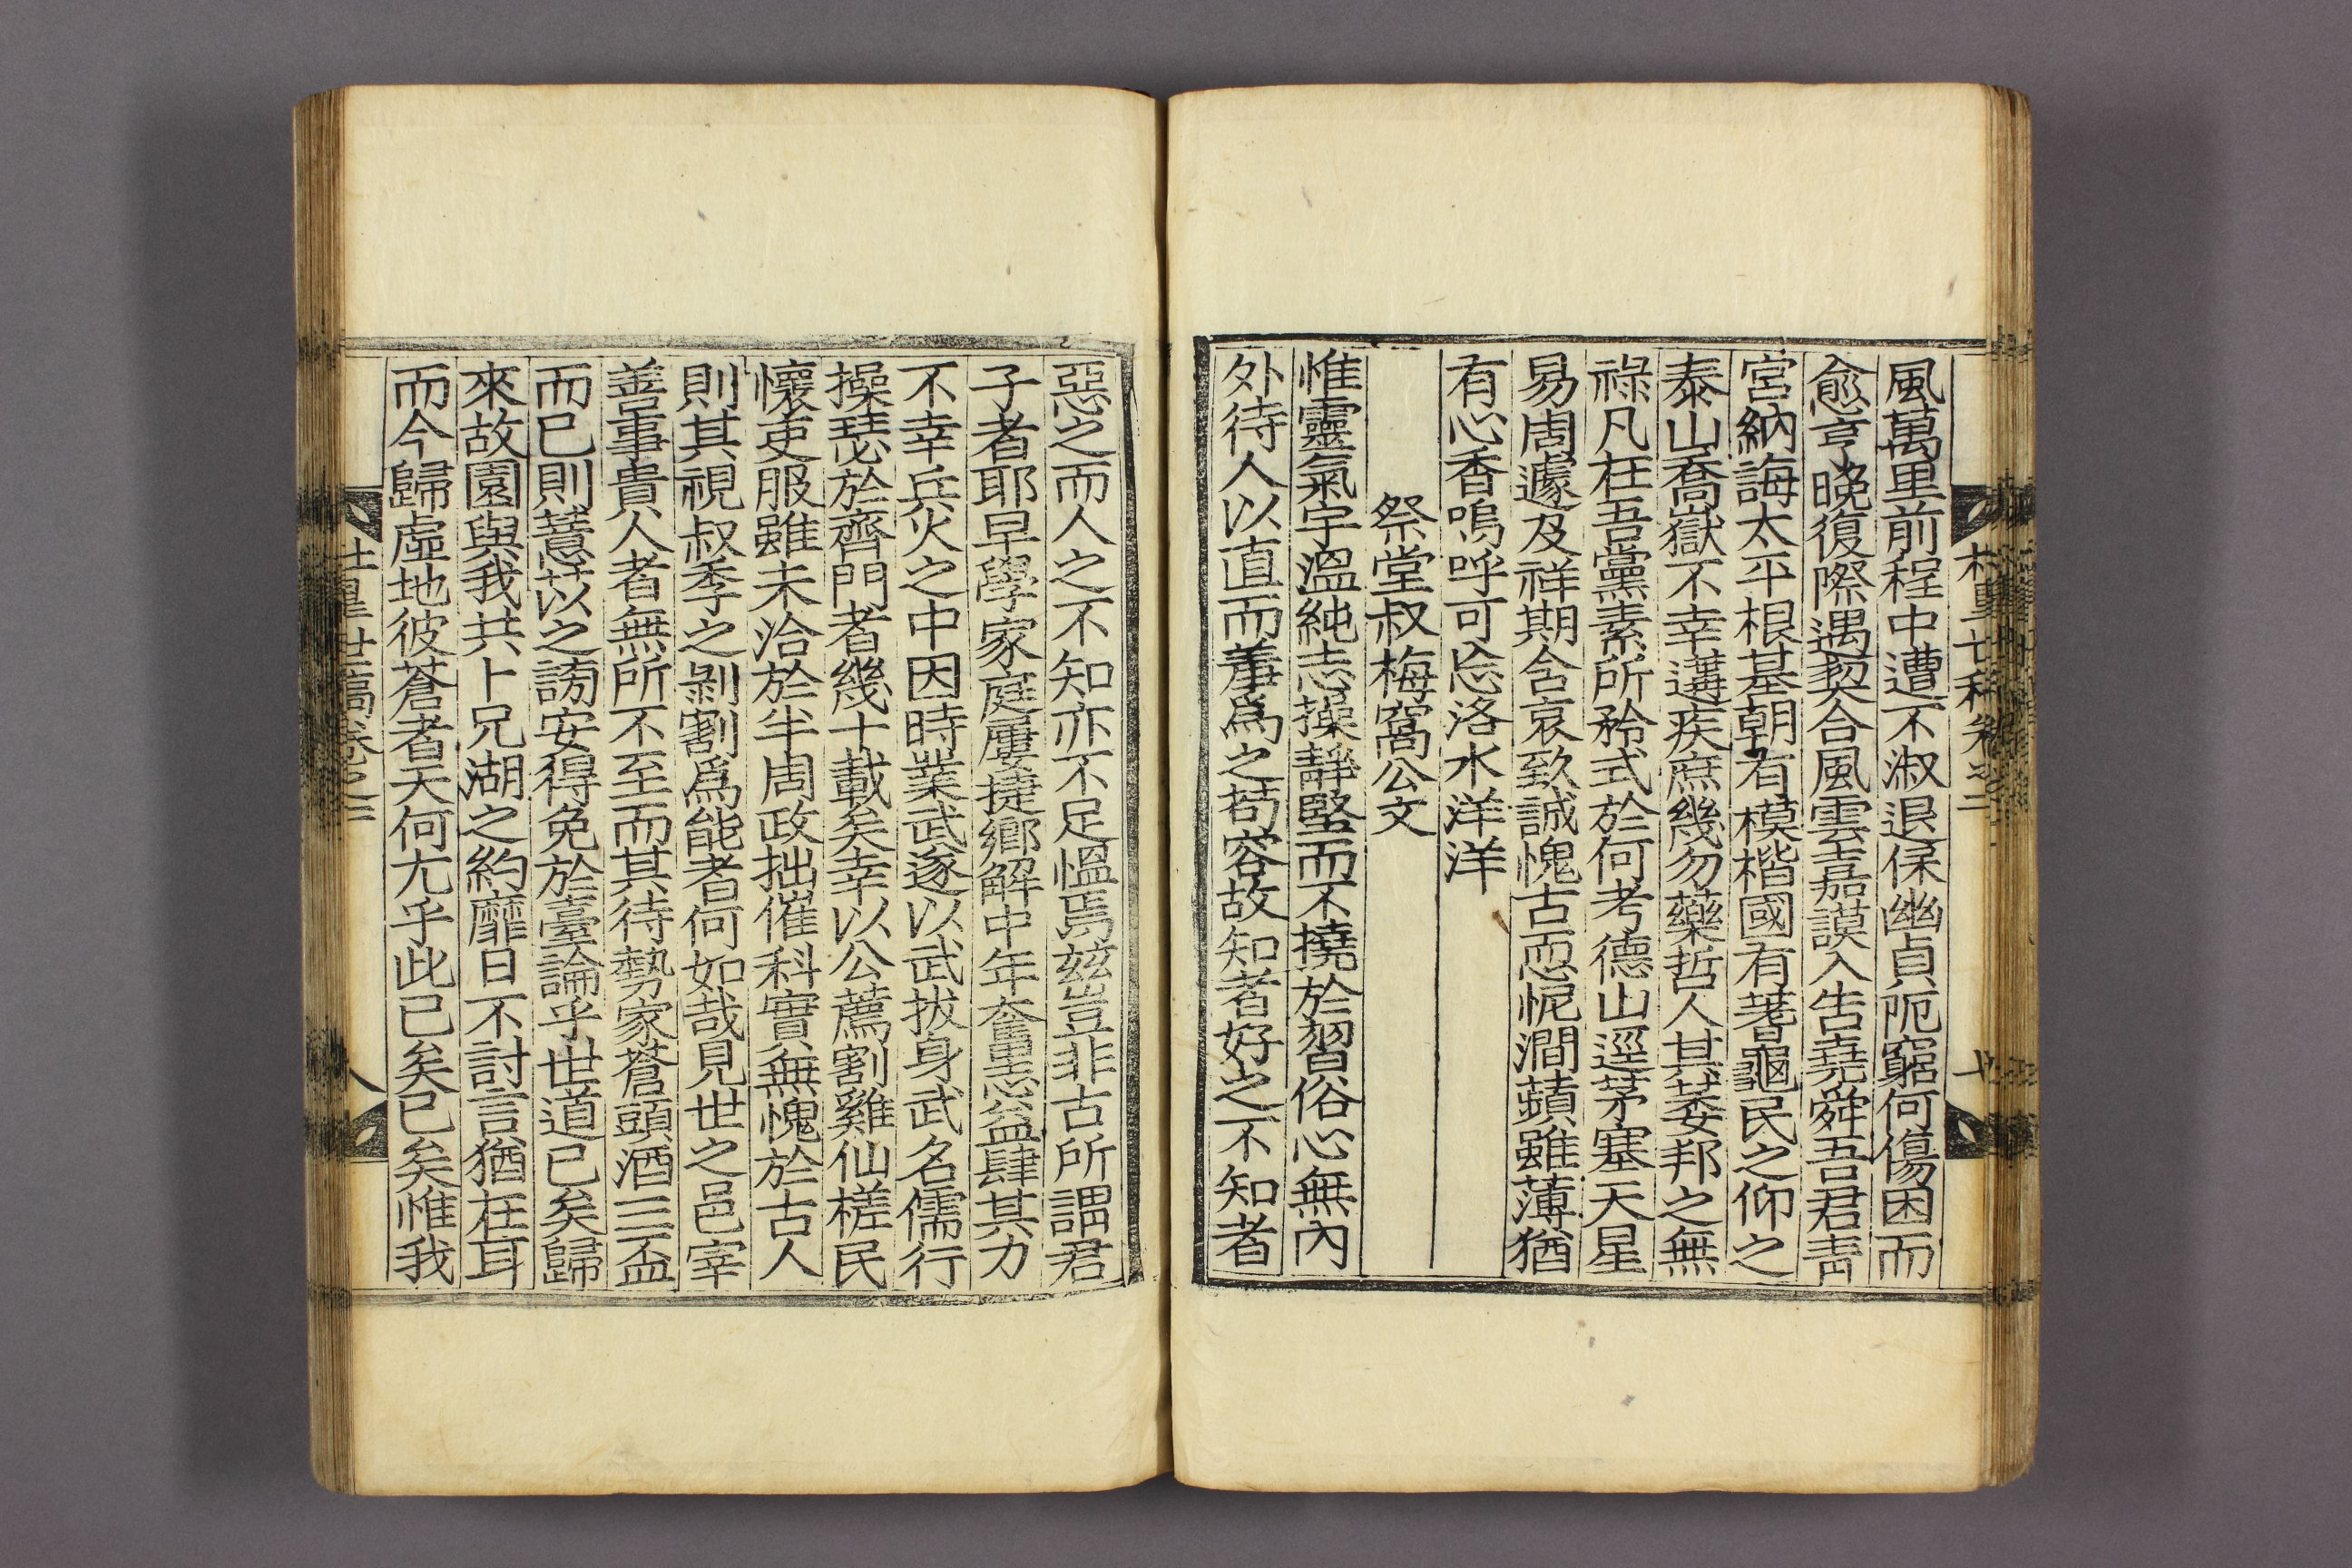 風萬里前程中遭不淑退保幽貞阨窮何傷困而
愈亨晚復際遇契合風雲嘉謨入告堯舜吾君靑
宮納誨太平根基朝有模楷國有蓍龜民之仰之
泰山喬嶽不幸遘疾庶幾勿藥哲人其萎邦之無
祿凡在吾黨素所矜式於何考德山逕茅塞天星
易周遽及祥期含哀致誠愧古而怩澗蘋雖薄猶
有心香嗚呼可忘洛水洋洋
祭堂叔梅窩公文
惟靈氣宇溫純志操靜堅而不撓於習俗心無內
外待人以直而羞爲之苟容故知者好之不知者
惡之而人之不知亦不足慍焉玆豈非古所謂君
子者耶早學家庭屢捷鄕解中年奮罵益肆其力
不幸兵火之中因時業武遂以武拔身武名儒行
操瑟於齊門者幾十載矣幸以公薦割雞仙槎民
懷吏服雖未洽於半周政拙催科實無愧於古人
則其視叔季之剝割爲能者何如哉見世之邑宰
善事貴人者無所不至而其待勢家蒼頭酒三盃
而已則薏苡之謗安得免於臺論乎世道已矣歸
來故園與我共卜兄湖之約靡日不討言猶在耳
而今歸虛地彼蒼者天何尤乎此已矣已矣惟我
世稿卷之二
八